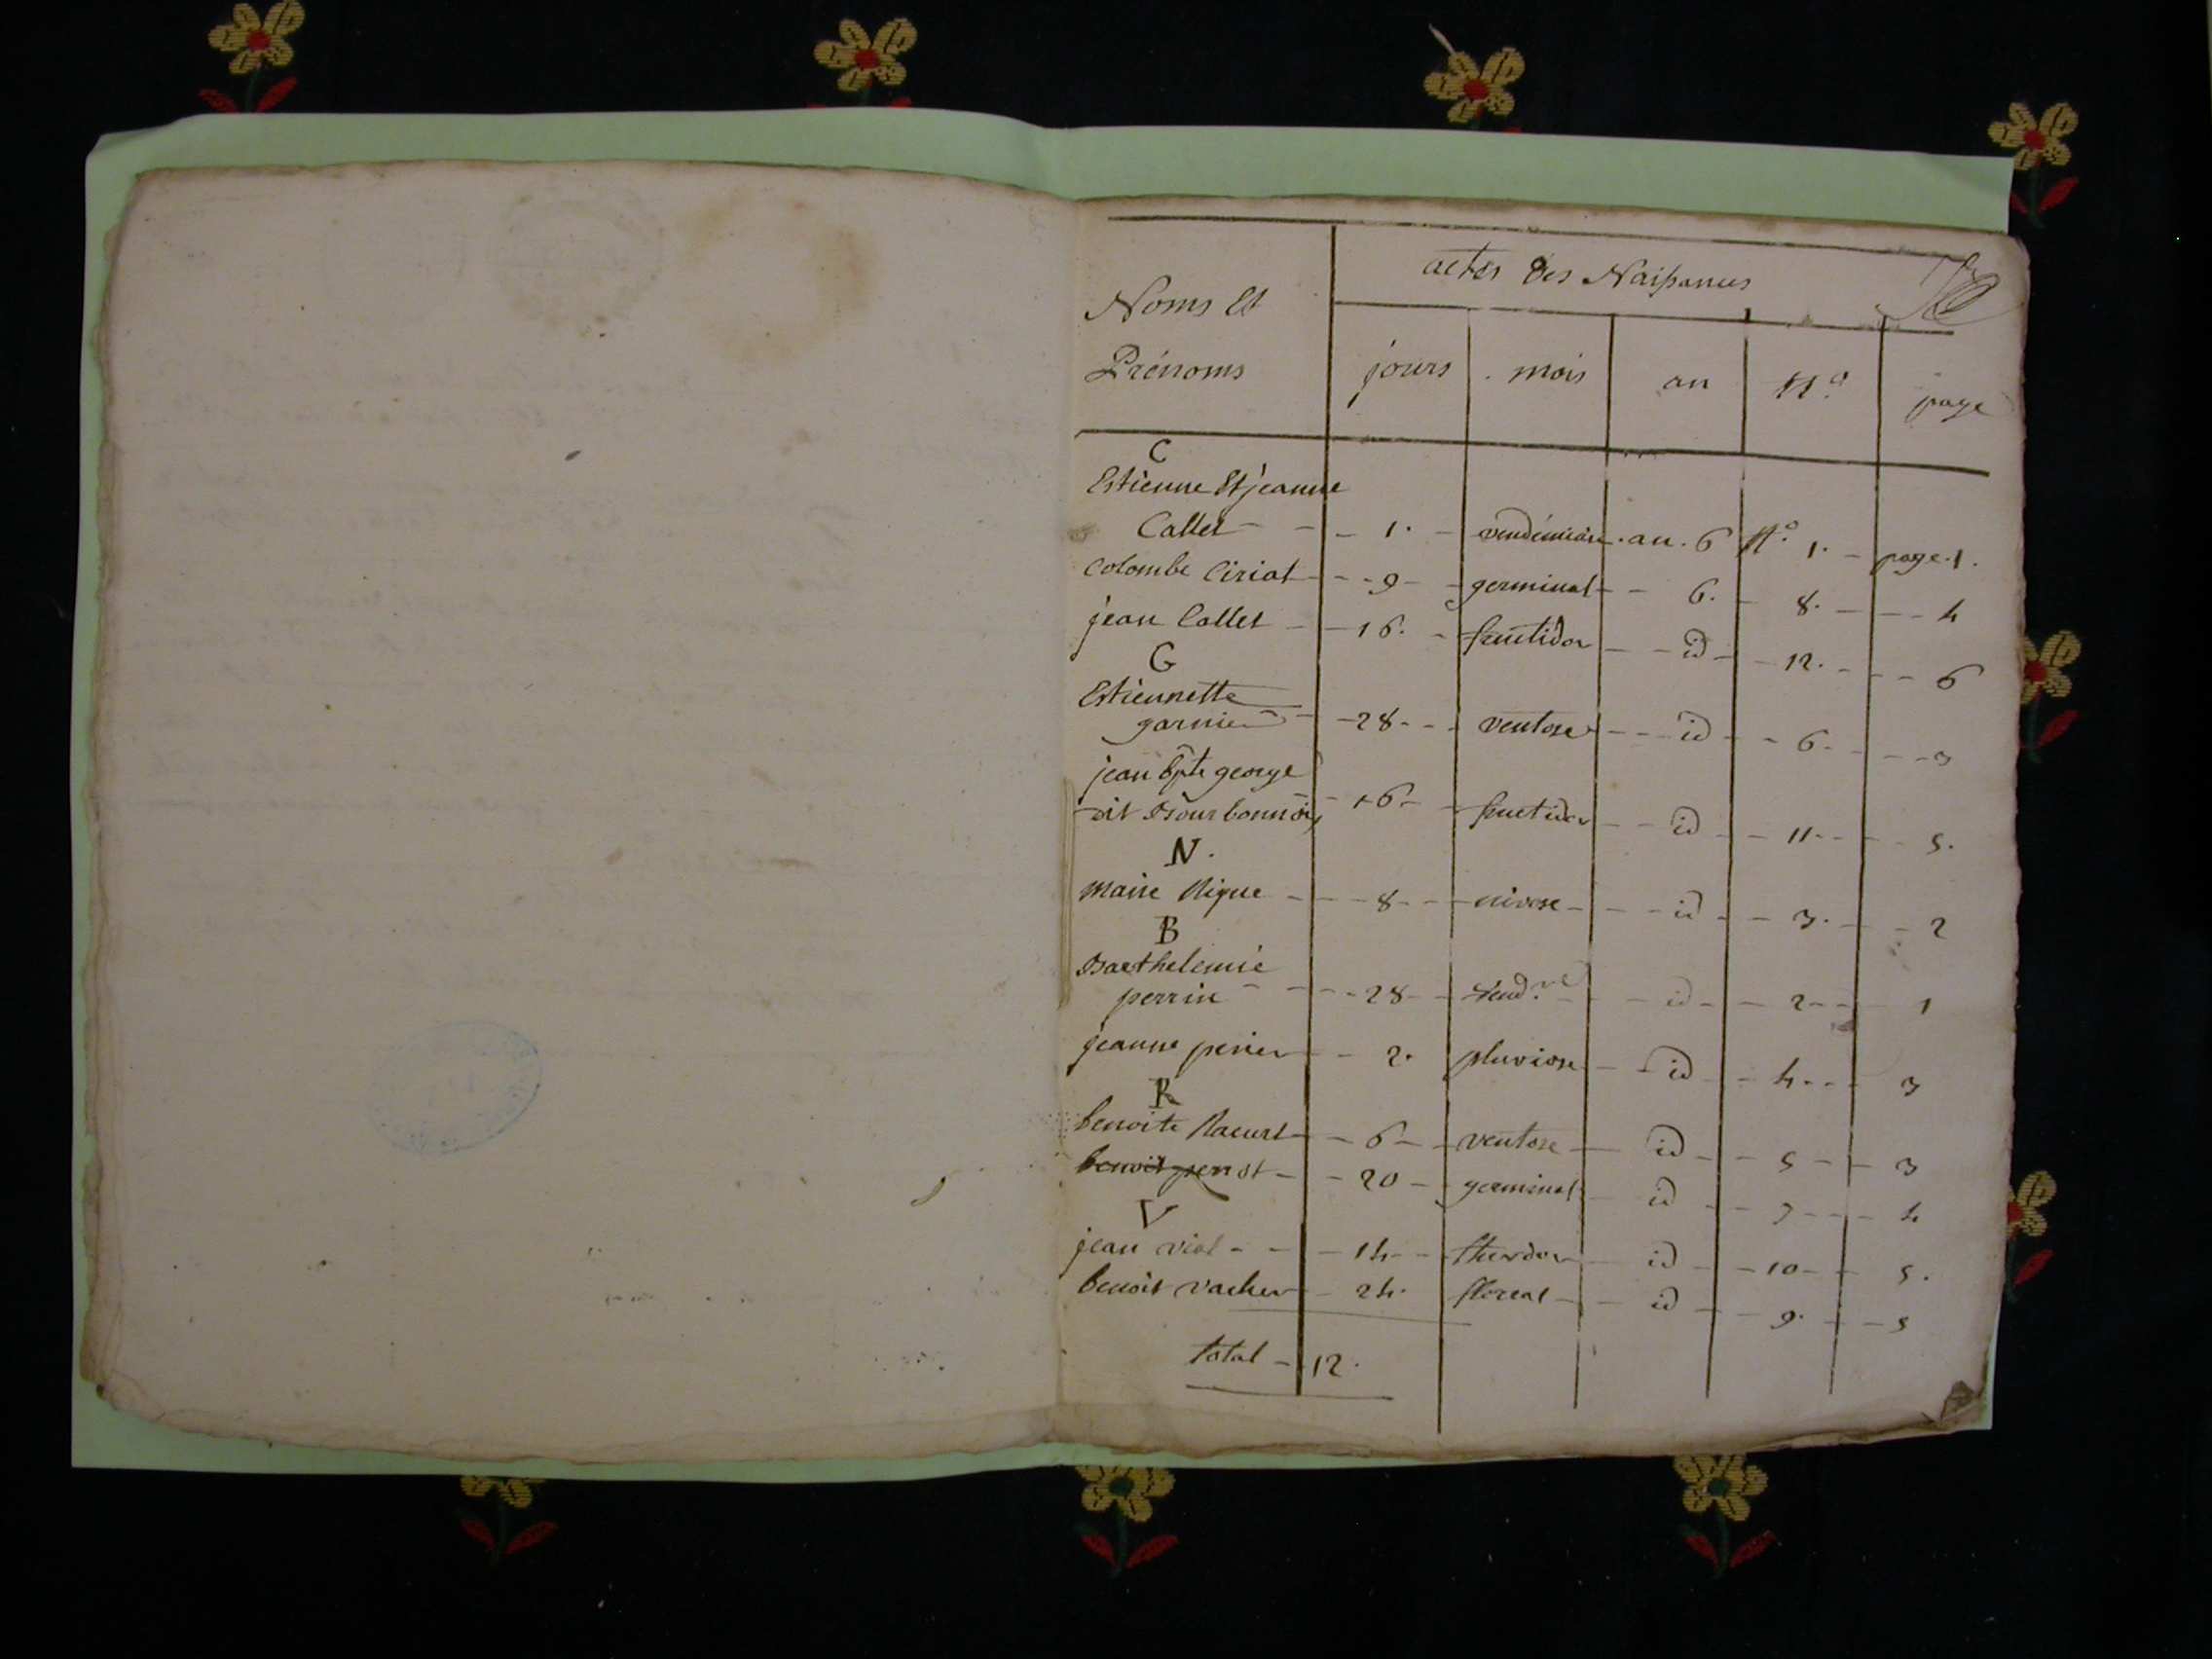 actes des Naissances
Noms Et
Prénoms
jours mois an N.o page
C
Estienne Et jeanne
Callet - 1. - vendémiaire . an . 6 N.o 1. - page . 1.
Colombe Ciriat - 9 - germinal - 6. 8. - 4
jean Callet - 16. - fructidor - id - 12. - 6
G
Estiennette
garnier - 28 - ventose - id - 6 - 3
jean bpte george
dit Bourbonnois - 16 - fructidor - id - 11 - 5.
N.
marie Nigue - 8 - nivose - id - 3. - 2
B
Barthelemie
perrin - 28 - vend.re - id - 2 - 1
jeanne perier - 2. pluviose - id - 4 - 3
R
benoite Racurt - 6 - ventose - id - 5 - 3
- 20 - germinal - id - 7 - 4
V
jean vial - 14 - therdor - id - 10 - 5.
benoit vacher - 24. floreal - id - 9. - 5
total - 12.